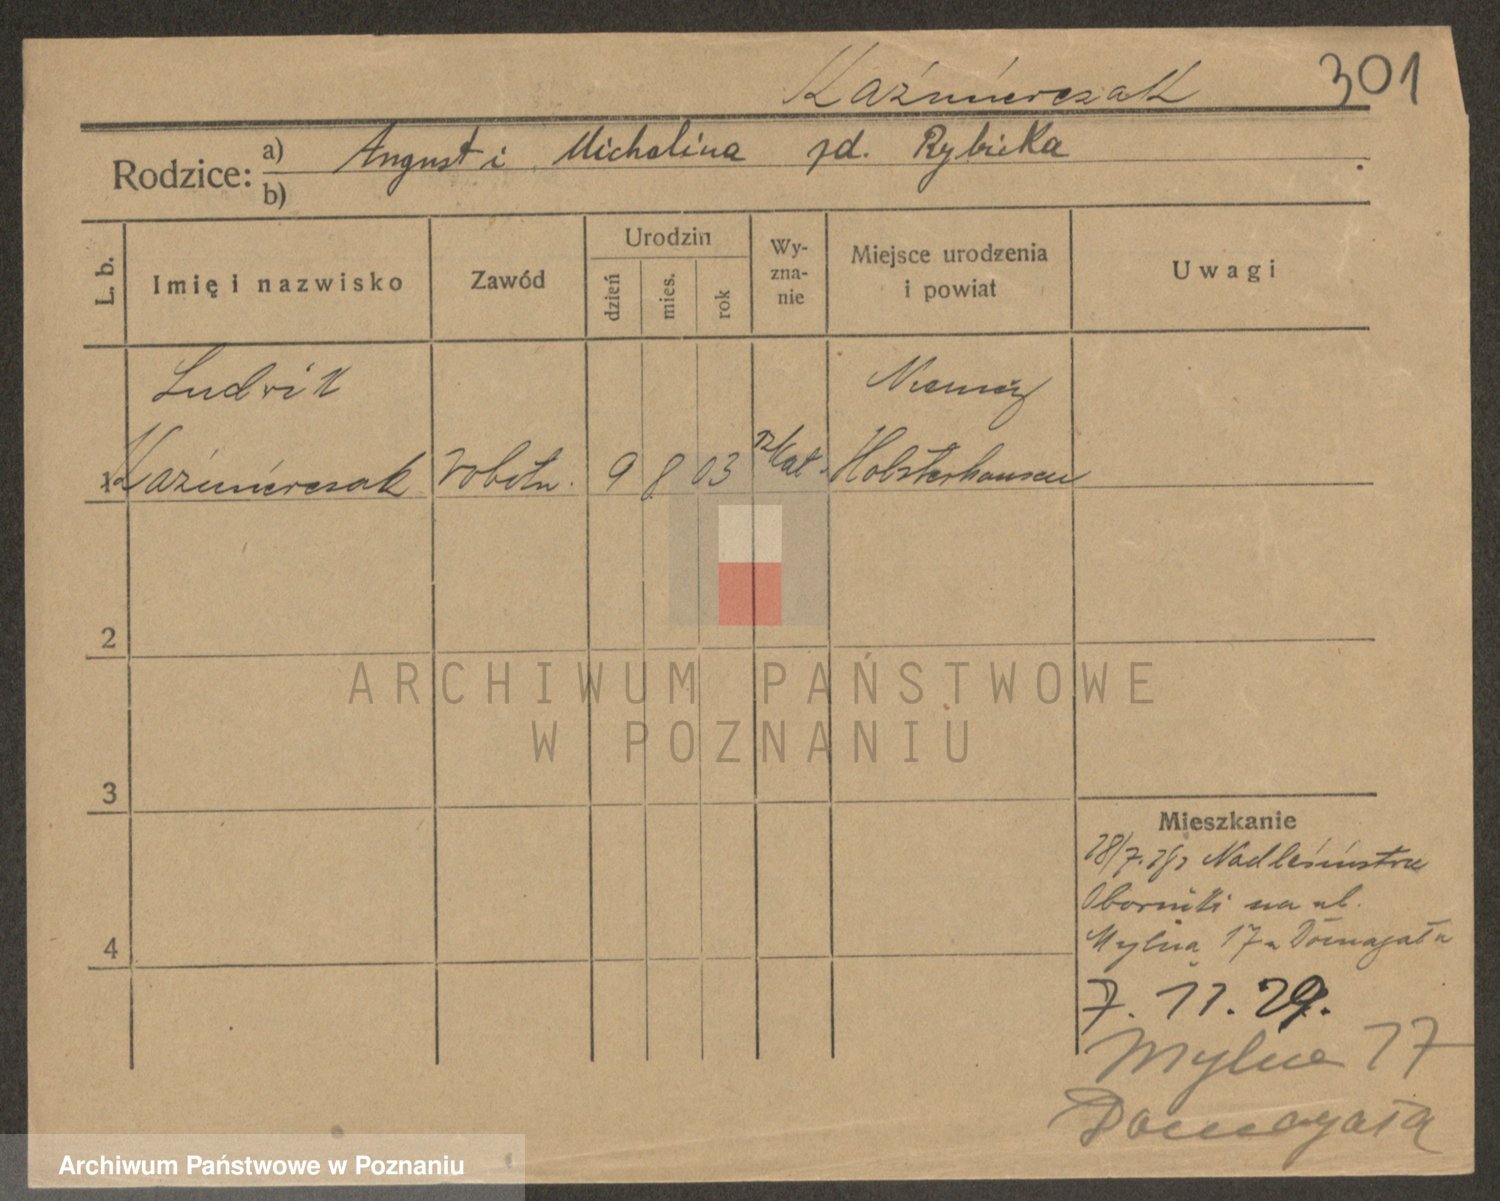 Kaźmierczak 301
Rodzice: a) August i Michalina zd. Rybicka
b)
L. b. Imię i nazwisko Zawód Urodzin dzień mies. rok Wy-zna-nie Miejsce urodzenia i powiat Uwagi
Ludwik Niemcy
1 Kaźmierczak robotn. 9 8 03 rz/kat. Holsterhausen
2
ARCHIWUM PAŃSTWOWE
W POZNANIU
3
Mieszkanie
28/7.29 z Nadleśnictwa
Oborniki na ul.
4 Mylna 17 u Domagała
7. 11. 29.
Mylna 17
Domagała
Archiwum Państwowe w Poznaniu